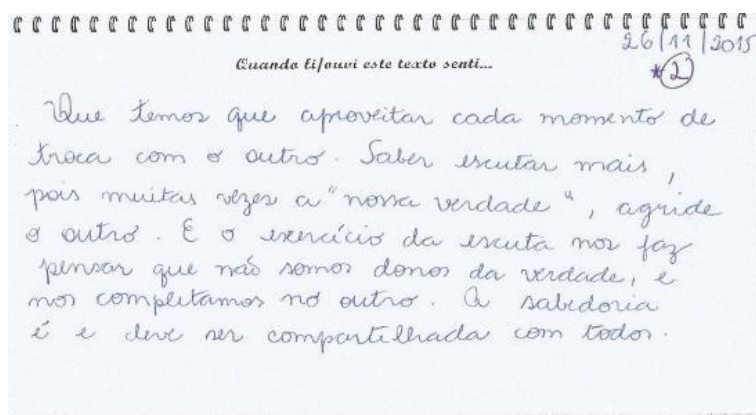 26/11/2015
Quando li/ouvi este texto senti...
*2
Que temos que aproveitar cada momento de
troca com o outro. Saber escutar mais,
pois muitas vezes a "nossa verdade", agride
o outro. E o exercício da escuta nos faz
pensar que não somos donos da verdade, e
nos completamos no outro. A sabedoria
é e deve ser compartilhada com todos.